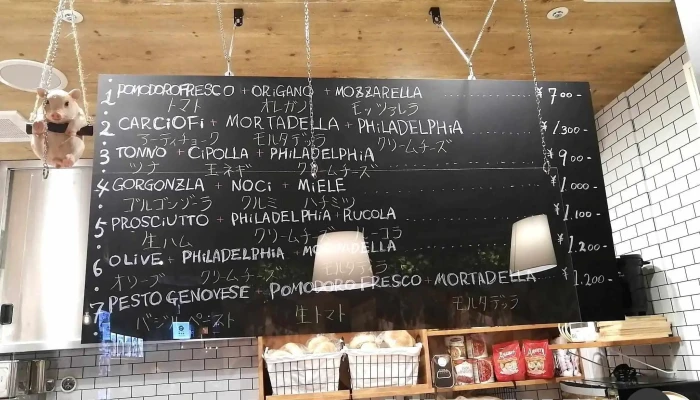 1 POMODORO FRESCO + ORIGANO + MOZZARELLA ¥700-
トマト オレガノ モッツァレラ
2 CARCIOFI + MORTADELLA + PHILADELPHIA ¥1300-
アーティチョーク モルタデッラ クリームチーズ
3 TONNO + CIPOLLA + PHILADELPHIA ¥900-
ツナ 玉ネギ クリームチーズ
4 GORGONZLA + NOCI + MIELE ¥1000-
ゴルゴンゾーラ クルミ ハチミツ
5 PROSCIUTTO + PHILADELPHIA + RUCOLA ¥1.100-
生ハム クリームチーズ ルーコラ
6 OLIVE + PHILADELPHIA + MORTADELLA ¥1.200-
オリーブ クリームチーズ モルタデッラ
7 PESTO GENOVESE + POMODORO FRESCO + MORTADELLA ¥1.200-
バジルペースト 生トマト モルタデッラ